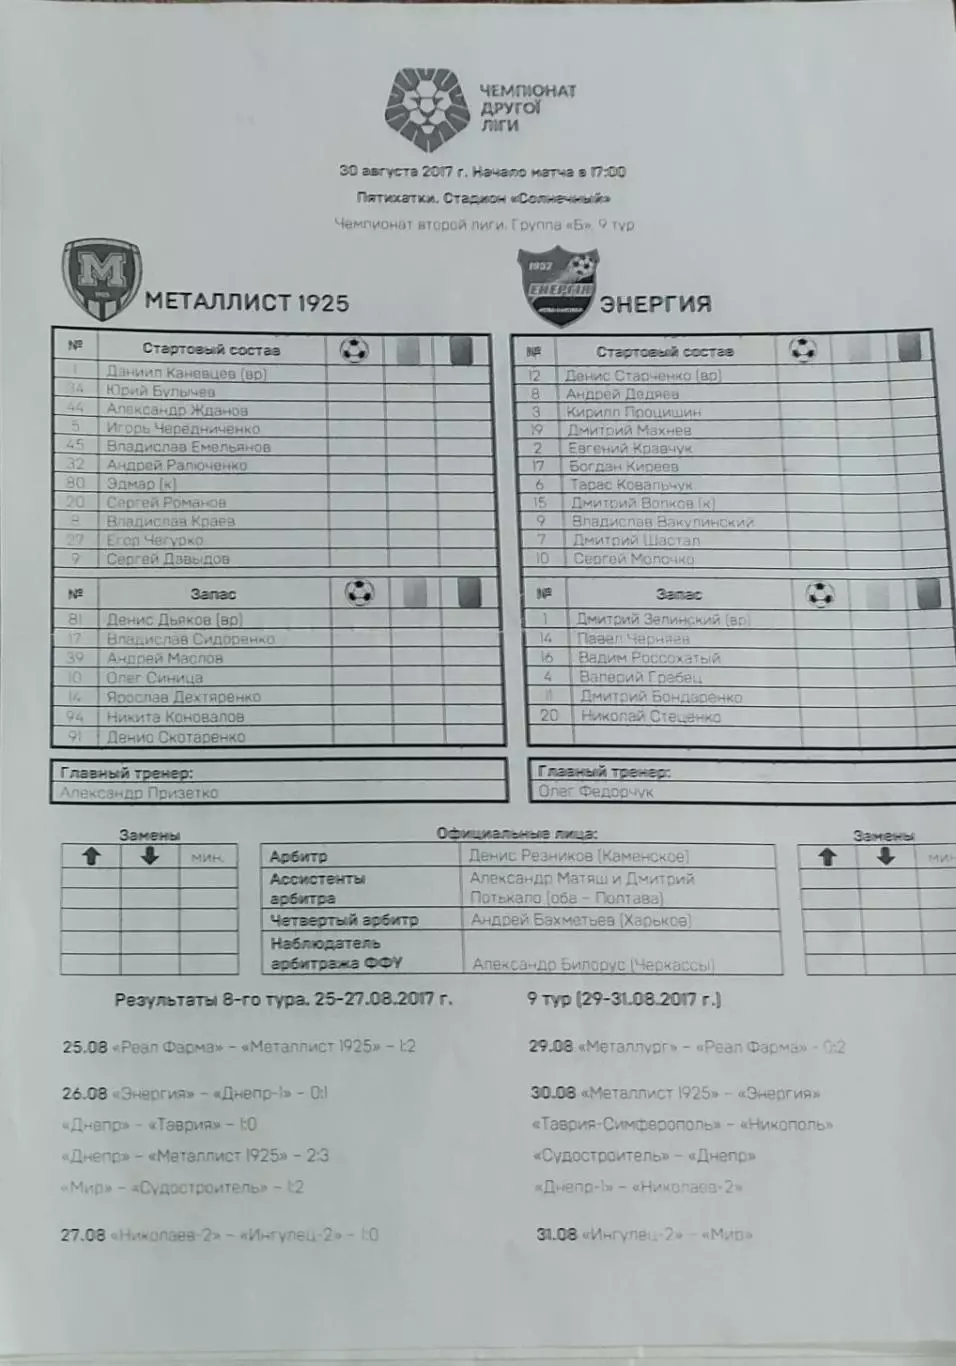 ЧЕМПІОНАТ
ДРУГОЇ
ЛІГИ
30 августа 2017 г. Начало матча в 17:00
Пятихатки. Стадион «Солнечный»
Чемпионат второй лиги. Группа «Б». 9 тур
М
МЕТАЛЛИСТ 1925
1957
ЕНЕРГІЯ
ЭНЕРГИЯ
№ Стартовый состав
1 Даниил Каневцев (вр)
34 Юрий Булычев
44 Александр Жданов
5 Игорь Чередниченко
45 Владислав Емельянов
32 Андрей Ралюченко
80 Эдмар (к)
20 Сергей Романов
8 Владислав Краев
27 Егор Чегурко
9 Сергей Давыдов
№ Запас
81 Денис Дьяков (вр)
17 Владислав Сидоренко
39 Андрей Маслов
10 Олег Синица
14 Ярослав Дехтяренко
94 Никита Коновалов
91 Денис Скотаренко
Главный тренер:
Александр Призетко
№ Стартовый состав
12 Денис Старченко (вр)
8 Андрей Дедяев
3 Кирилл Процишин
19 Дмитрий Махнев
2 Евгений Кравчук
17 Богдан Киреев
6 Тарас Ковальчук
15 Дмитрий Волков (к)
9 Владислав Вакулинский
7 Дмитрий Шастал
10 Сергей Молочко
№ Запас
1 Дмитрий Зелинский (вр)
14 Павел Черняев
16 Вадим Россохатый
4 Валерий Грабец
11 Дмитрий Бондаренко
20 Николай Стеценко
Главный тренер:
Олег Федорчук
Замены
мин.
Официальные лица:
Арбитр Денис Резников (Каменское)
Ассистенты арбитра Александр Матяш и Дмитрий
Потькало (оба - Полтава)
Четвертый арбитр Андрей Бахметьев (Харьков)
Наблюдатель
арбитража ФФУ Александр Билорус (Черкассы)
Замены
мин
Результаты 8-го тура. 25-27.08.2017 г.
25.08 «Реал Фарма» - «Металлист 1925» - 1:2
26.08 «Энергия» - «Днепр-1» - 0:1
«Днепр» - «Таврия» - 1:0
«Днепр» - «Металлист 1925» - 2:3
«Мир» - «Судостроитель» - 1:2
27.08 «Николаев-2» - «Ингулец-2» - 1:0
9 тур (29-31.08.2017 г.)
29.08 «Металлург» - «Реал Фарма» - 0:2
30.08 «Металлист 1925» - «Энергия»
«Таврия-Симферополь» - «Никополь»
«Судостроитель» - «Днепр»
«Днепр-1» - «Николаев-2»
31.08 «Ингулец-2» - «Мир»